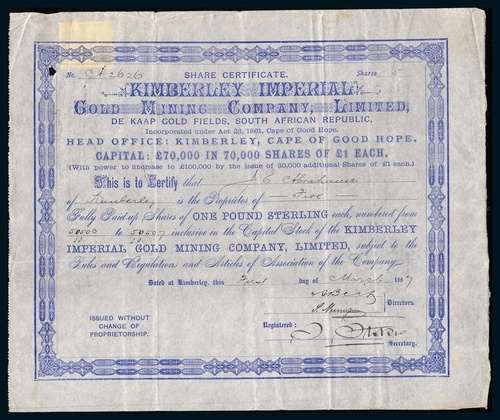 No. A2626 SHARE CERTIFICATE. Shares 5
KIMBERLEY IMPERIAL
GOLD MINING COMPANY, LIMITED,
DE KAAP GOLD FIELDS, SOUTH AFRICAN REPUBLIC,
Incorporated under Act 23, 1861, Cape of Good Hope.
HEAD OFFICE: KIMBERLEY, CAPE OF GOOD HOPE.
CAPITAL: £70,000 IN 70,000 SHARES OF £1 EACH.
(With power to increase to £100,000 by the issue of 30,000 additional Shares of £1 each.)
This is to Certify that J E Abrahams
of Kimberley is the Proprietor of Five
Fully Paid up Shares of ONE POUND STERLING each, numbered from
50503 to 50507 inclusive in the Capital Stock of the KIMBERLEY
IMPERIAL GOLD MINING COMPANY, LIMITED, subject to the
Rules and Regulations and Articles of Association of the Company.
Dated at Kimberley, this First day of March 1887
Directors.
ISSUED WITHOUT
CHANGE OF
PROPRIETORSHIP.
Registered:
Secretary.